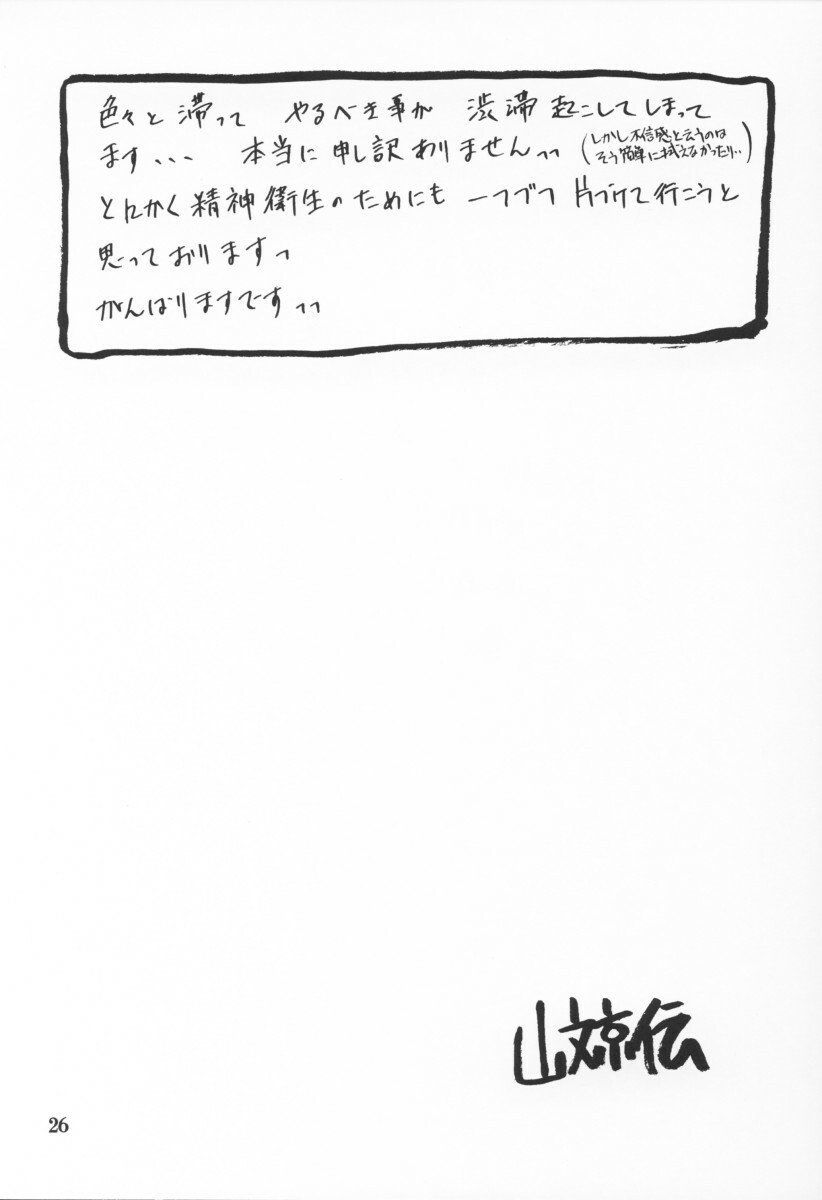 色々と 滞って やるべき事が 渋滞 起こしてしまって
ます、、、 本当に申し訳ありませんっっ (しかし不信感と云うのは
そう簡単に拭えなかったり‥)
とにかく精神衛生のためにも 一つづつ 片づけて行こうと
思っておりますっ
がんばりますですっっ
山文京伝
26